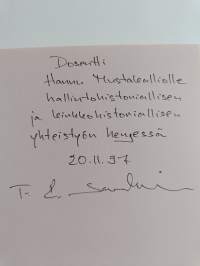 Dosentti
Hannu Mustakalliolle
hallintohistoriallisen
ja kirkkohistoriallisen
yhteistyön hengessä
20.11.97
T.